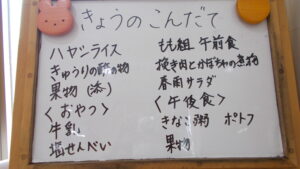 きょうのこんだて
ハヤシライス
きゅうりの酢の物
果物（添）
〈おやつ〉
牛乳
塩せんべい
もも組 午前食
挽き肉とかぼちゃの煮物
春雨サラダ
〈午後食〉
きなこ粥 ポトフ
果物